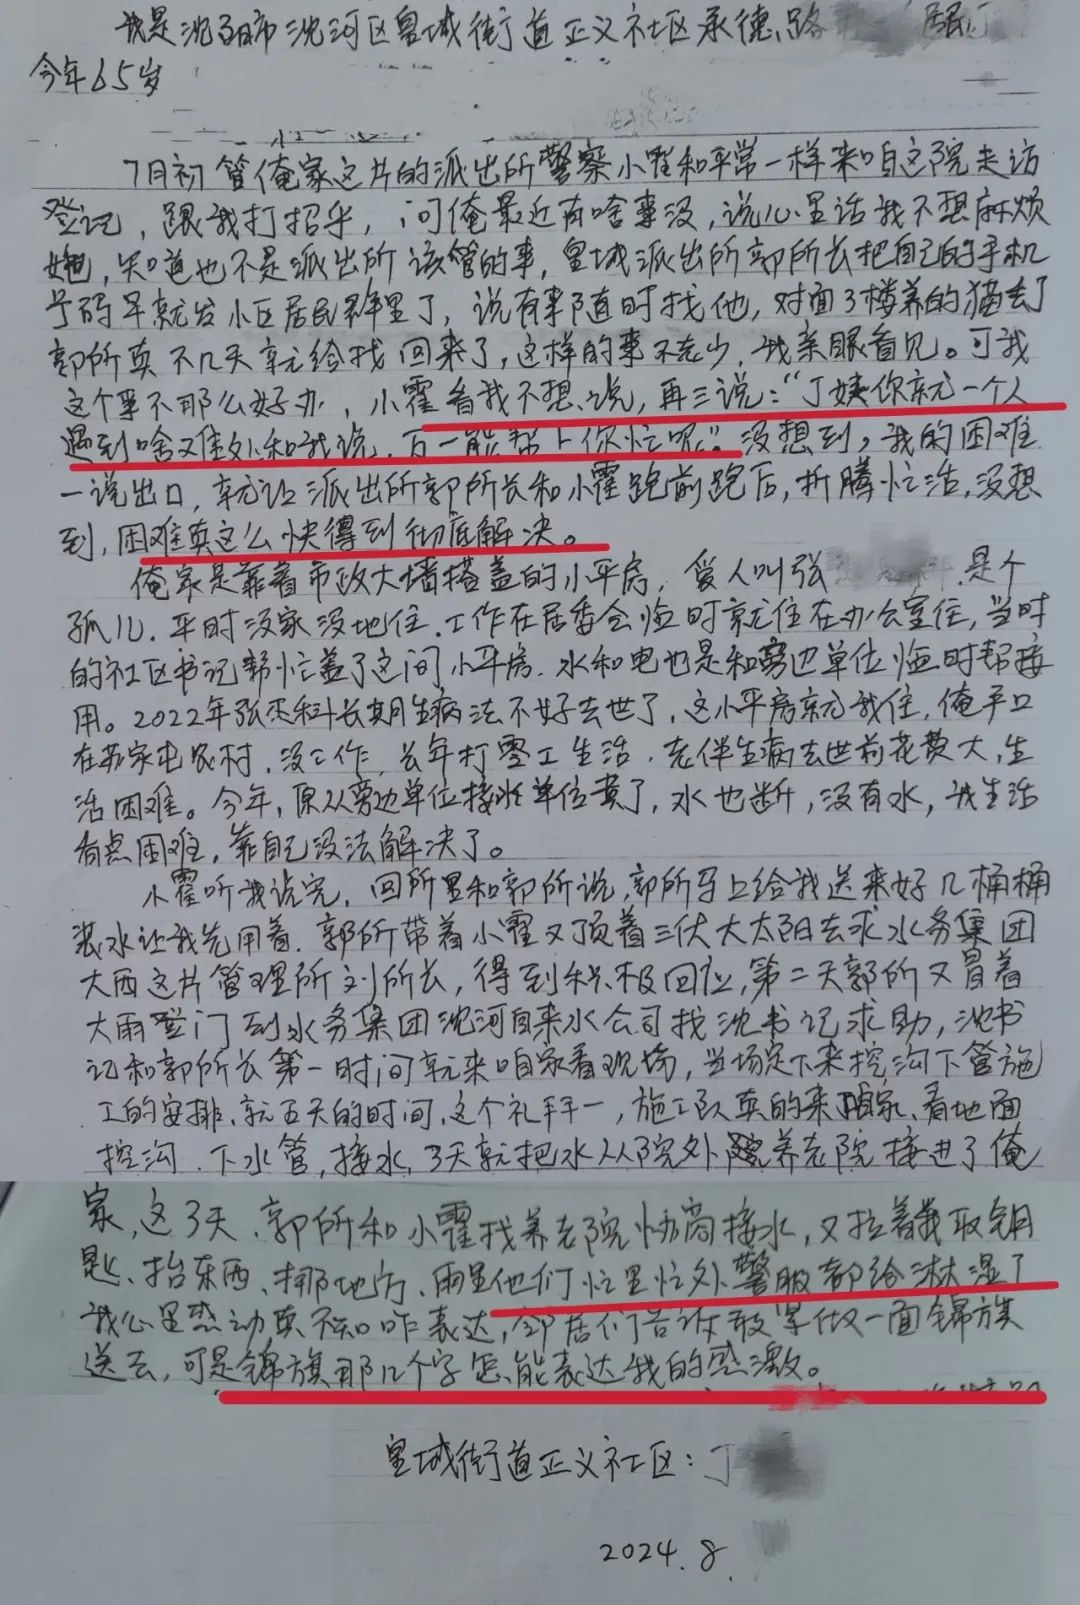 我是沈阳市沈河区皇城街道正义社区承德路 居民丁
今年65岁
7月初管俺家这片的派出所警察小霍和平常一样来咱这院走访
登记，跟我打招乎，问俺最近有啥事没，说心里话我不想麻烦
她，知道也不是派出所该管的事，皇城派出所郭所长把自己的手机
号码早就发小区居民群里了，说有事随时找他，对面3楼养的猫丢了
郭所真不几天就给找回来了，这样的事不老少，我亲眼看见。可我
这个事不那么好办，小霍看我不想说，再三说：“丁姨你就一个人
遇到啥难处和我说，万一能帮上你忙呢”。没想到，我的困难
一说出口，就让派出所郭所长和小霍跑前跑后，折腾忙活，没想
到，困难真这么快得到彻底解决。
俺家是靠着市政大墙搭盖的小平房，爱人叫张 是个
孤儿，平时没家没地住，工作在居委会临时就住在办公室住，当时
的社区书记帮忙盖了这间小平房，水和电也是和旁边单位临时帮接
用。2022年张 长期生病治不好去世了，这小平房就我住，俺户口
在苏家屯农村，没工作，长年打零工生活，老伴生病去世前花费大，生
活困难。今年，原从旁边单位接水单位黄了，水也断，没有水，我生活
有点困难，靠自己没法解决了。
小霍听我说完，回所里和郭所说，郭所马上给我送来好几桶桶
装水让我先用着，郭所带着小霍又顶着三伏大太阳去求水务集团
大西这片管理所刘所长，得到积极回应，第二天郭所又冒着
大雨登门到水务集团沈河自来水公司找沈书记求助，沈书
记和郭所长第一时间就来咱家看现场，当场定下来挖沟下管施
工的安排，就五天的时间，这个礼拜一，施工队真的来咱家，看地面
挖沟，下水管，接水，3天就把水从院外 养老院接进了俺
家，这3天，郭所和小霍找养老院协商接水，又拉着我取钥
匙、抬东西、挪地方，雨里他们忙里忙外警服都给淋湿了
我心里感动真不知咋表达，邻居们告诉我拿做一面锦旗
送去，可是锦旗那几个字怎能表达我的感激。
皇城街道正义社区：丁
2024.8